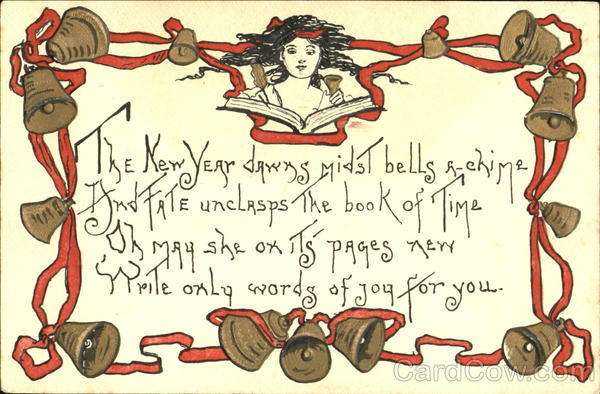 The New Year dawns midst bells a-chime
And Fate unclasps the book of Time
Oh may she on its pages new
Write only words of joy for you.
CardCow.com